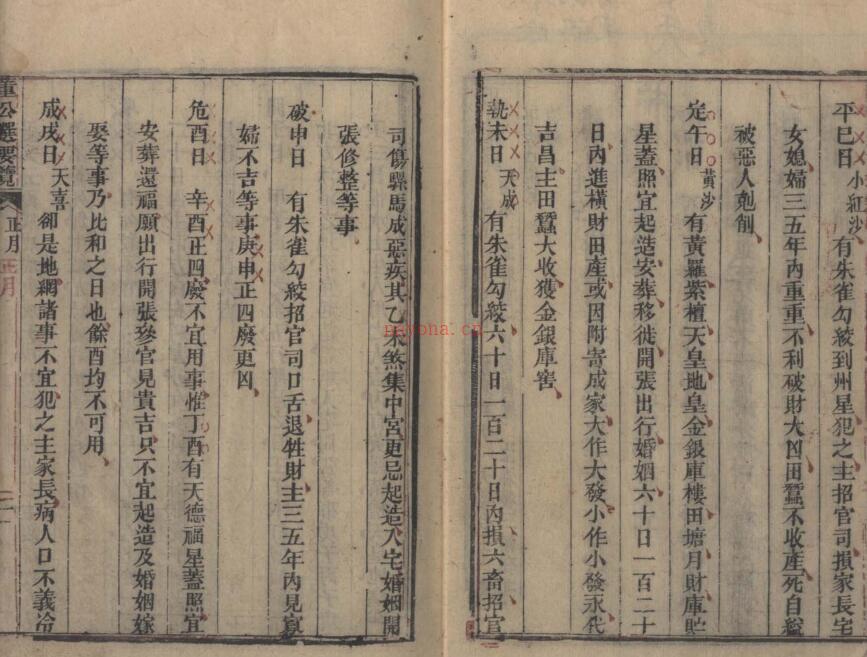 平巳日小紅沙有朱雀勾絞到州星犯之主招官司損家長宅
女媳婦三五年內重重不利破財大凶田蠶不收產死自縊
被惡人剋削
定午日黃沙有黃羅紫檀天皇地皇金銀庫樓田塘月財庫貯
星蓋照宜起造安葬移徙開張出行婚姻六十日一百二十
日內進橫財田產或因附寄成家大作大發小作小發永代
吉昌主田蠶大收獲金銀庫窖
執未日天成有朱雀勾絞六十日一百二十日內損六畜招官
司傷騾馬成惡疾其乙未煞集中宮更忌起造入宅婚姻開
張修整等事
破申日有朱雀勾絞招官司口舌退牲財主三五年內見寡
婦不吉等事庚申正四廢更凶
危酉日辛酉正四廢不宜用事惟丁酉有天德福星蓋照宜
安葬還福願出行開張參官見貴吉只不宜起造及婚姻嫁
娶等事乃比和之日也餘酉均不可用
成戌日天喜卻是地網諸事不宜犯之主家長病人口不義冷
董公選要覽
正月
正月
nayona.cn